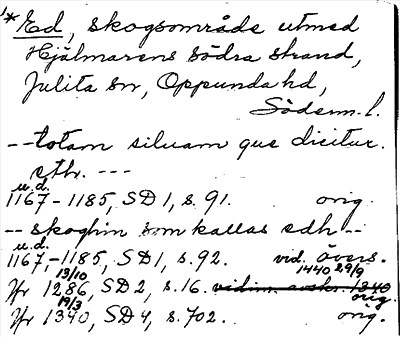 *Ed, skogsområde utmed
Hjälmarens södra strand,
Julita sn, Oppunda hd,
Söderm. l.
-- totam siluam que dicitur.
eth. ---
u.d.
1167-1185, SD 1, s. 91. orig.
-- skoghin som kallas edh --
u.d.
1167-1185, SD 1, s. 92. vid. övers.
13/10 1440 29/9
Jfr 1286, SD 2, s. 16. vidim. avskr. 1340
19/3 orig.
Jfr 1340, SD 4, s. 702. orig.